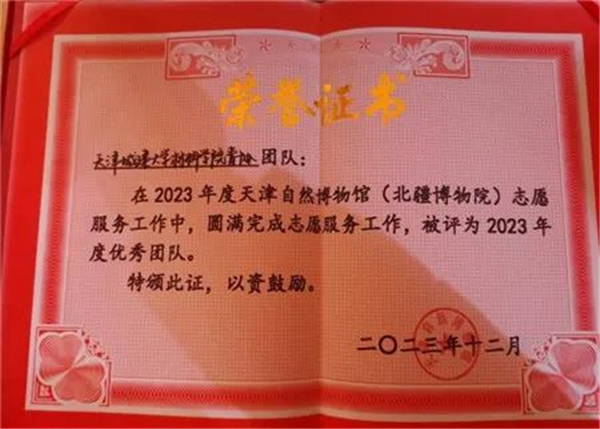 荣誉证书
天津城建大学材料学院青协团队：
在2023年度天津自然博物馆（北疆博物院）志愿
服务工作中，圆满完成志愿服务工作，被评为2023年
度优秀团队。
特颁此证，以资鼓励。
二〇二三年十二月